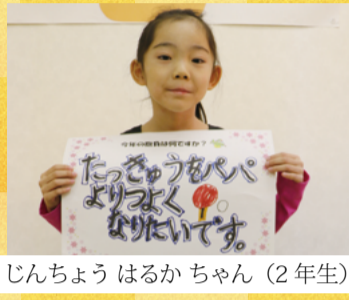 今年の抱負は何ですか？
たっきゅうをパパ
よりつよく
なりたいです。
じんちょう はるか ちゃん（2年生）